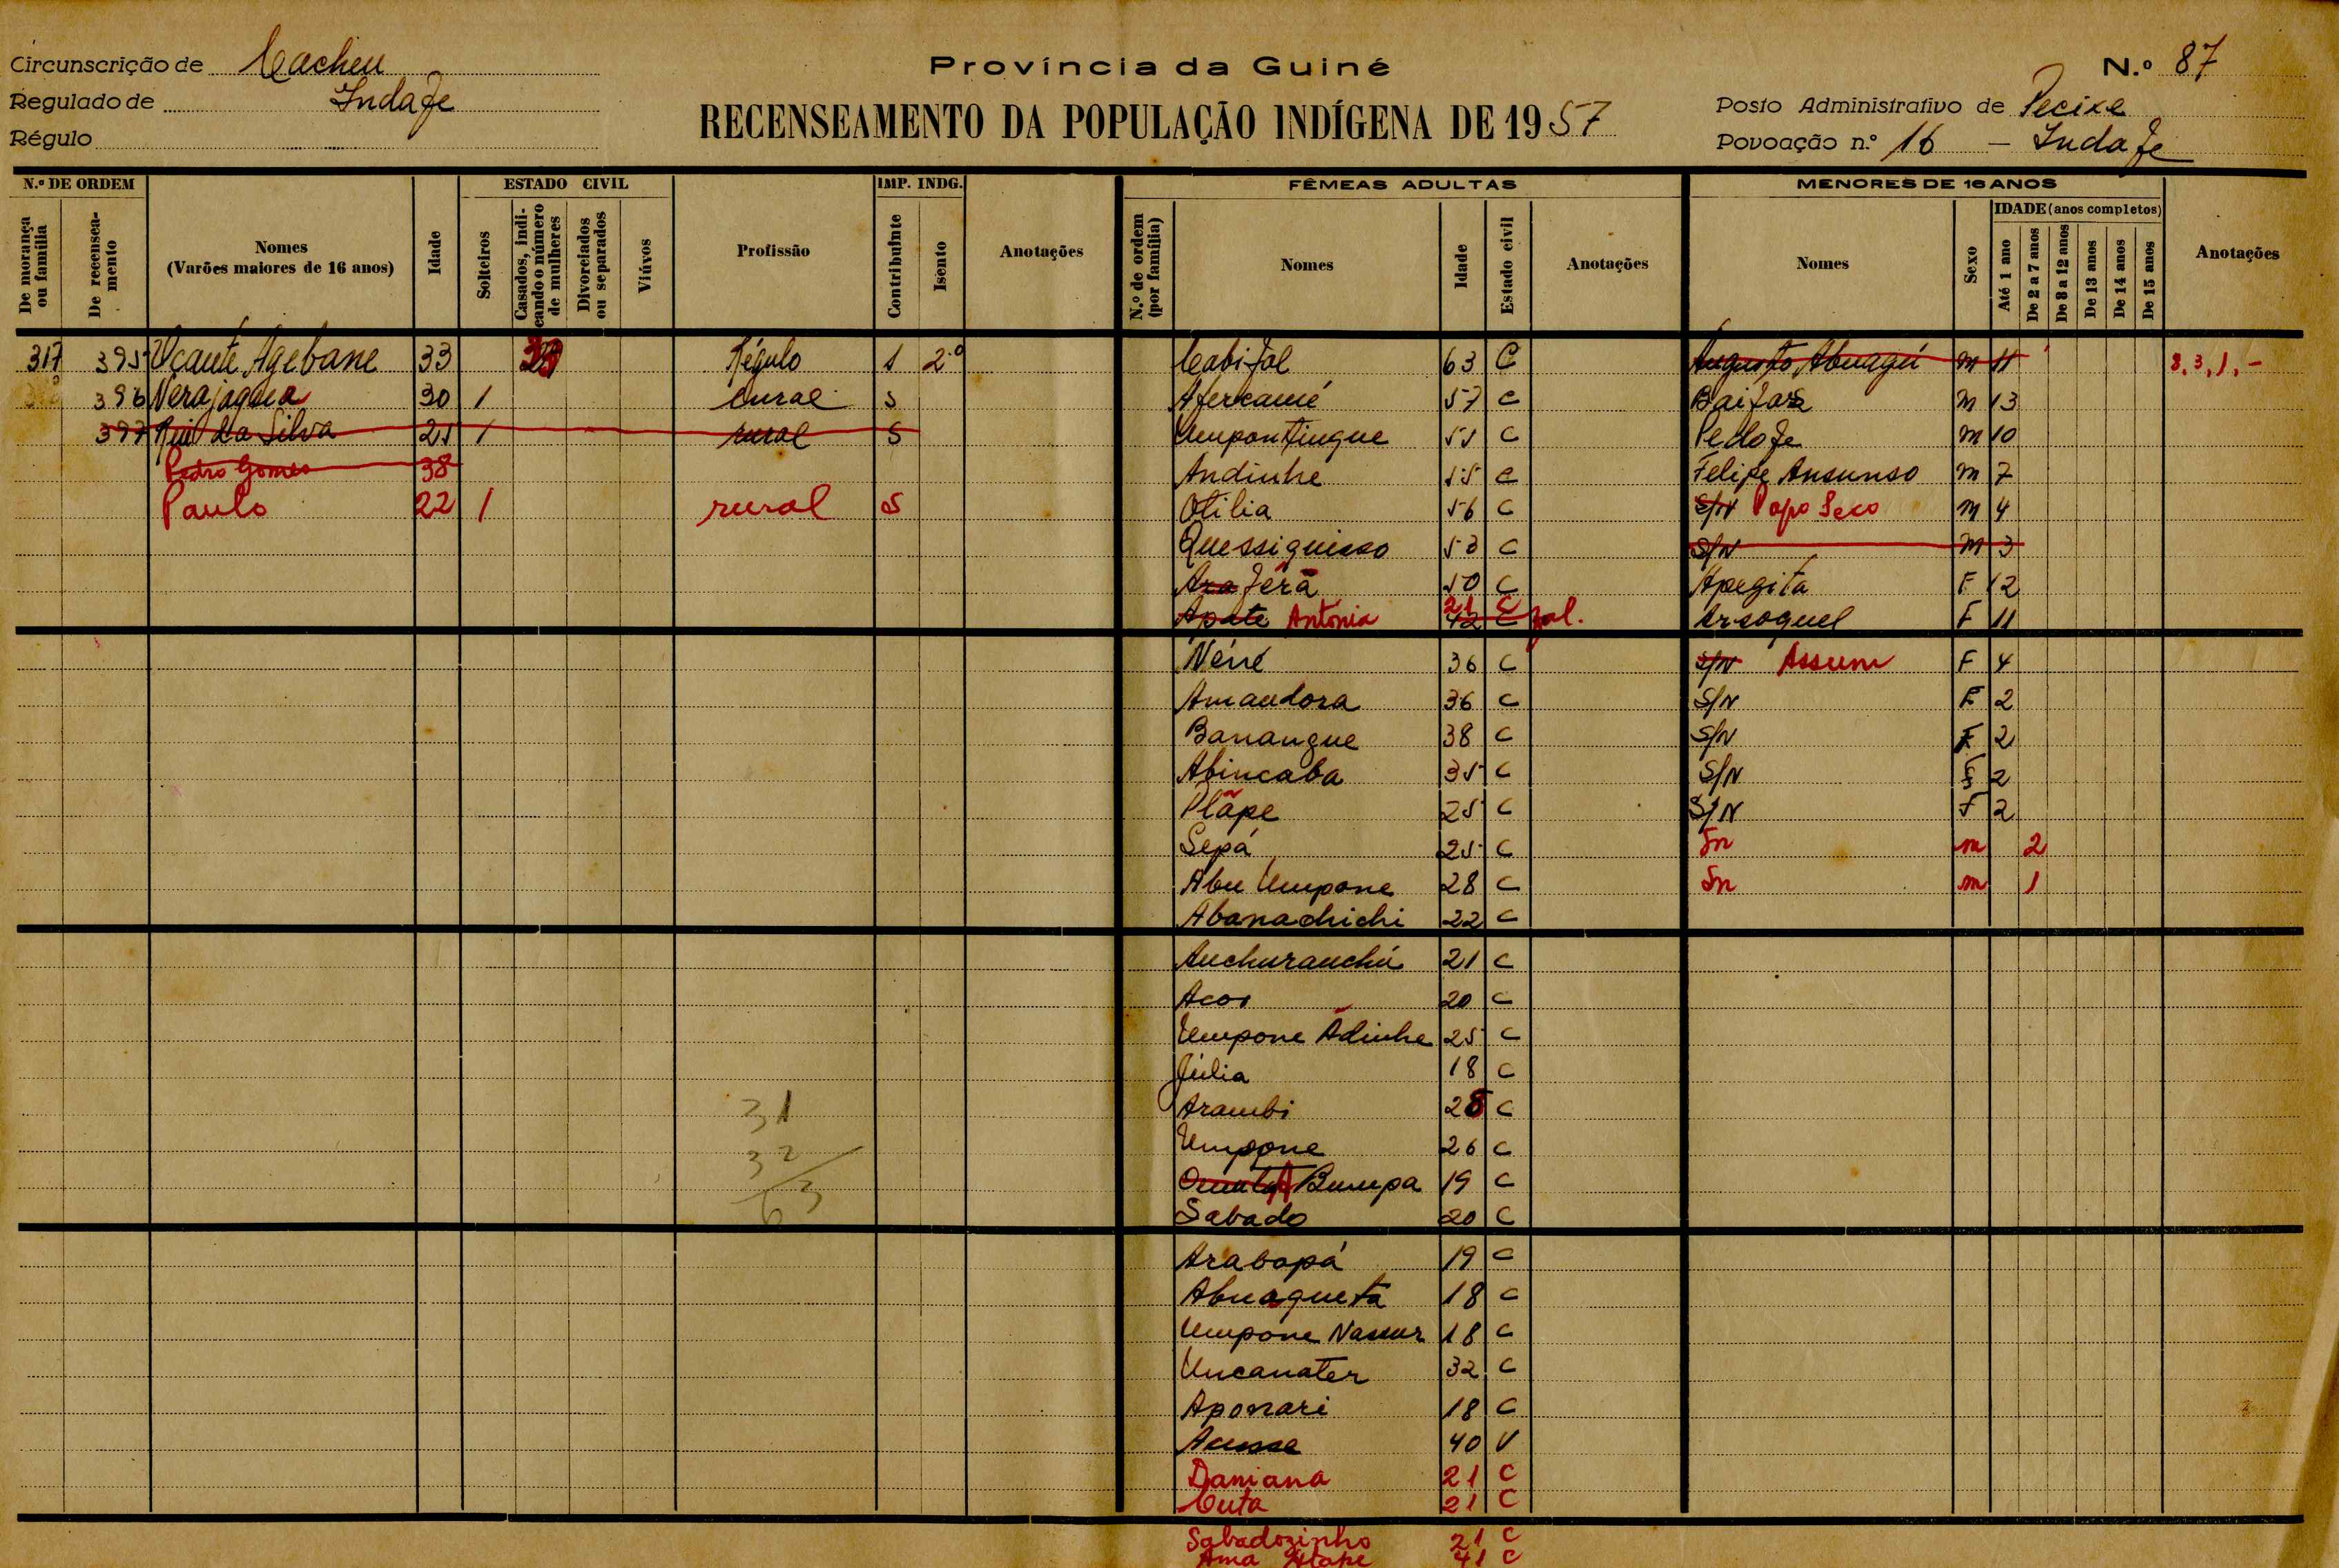 Circunscrição de Cacheu
Província da Guiné
N.º 87
Regulado de Indafe
RECENSEAMENTO DA POPULAÇÃO INDÍGENA DE 1957
Posto Administrativo de Pecixe
Régulo
Povoação n.º 16 - Indafe
N.º DE ORDEM
ESTADO CIVIL
IMP. INDG.
FÊMEAS ADULTAS
MENORES DE 16 ANOS
De morança ou família
De recenseamento
Nomes (Varões maiores de 16 anos)
Idade
Solteiros
Casados, indicando o número de mulheres
Divorciados ou separados
Viúvos
Profissão
Contribuinte
Isento
Anotações
N.º de ordem (por família)
Nomes
Idade
Estado civil
Anotações
Nomes
Sexo
IDADE (anos completos)
Até 1 ano
De 2 a 7 anos
De 8 a 12 anos
De 13 anos
De 14 anos
De 15 anos
Anotações
317 395 Ucauté Agebane 33 Régulo 1 2.º Cabifal 63 C Augusto Abuagú M 11 8,3,1,-
396 Nerajagaia 30 1 rural S Afercamé 57 C M 13
397 Rui da Silva 25 1 rural S Umpontingue 55 C Pedofe M 10
Pedro Gomes 38 Andinhe 55 C Felipe Ansunso M 7
Paulo 22 1 rural S Otilia 56 C S/N Papo Seco M 4
Quessiguisso 53 C S/N M 3
Ara Jérã 50 C Apegita F 12
Apate Antónia 21 42 C C Arsoquel F 11
Nené 36 C S/N Assum F 4
Amandora 36 C S/N F 2
Banangue 38 C S/N F 2
Abincaba 35 C S/N F 2
Plãpe 25 C S/N F 2
Sepá 25 C Sn m 2
Abu Umpone 28 C Sn m 1
Abanachichi 22 C
Anchuranchú 21 C
Acos 20 C
Umpone Adinhe 25 C
Júlia 18 C
31 Arambi 28 C
32 Umpone 26 C
63 A Bumpa 19 C
Sabado 20 C
Arabopá 19 C
Abuaqueta 18 C
Umpone Nassur 18 C
Uncanater 32 C
Aponari 18 C
Acusse 40 V
Daniana 21 C
Cuta 21 C
Sabadozinho 21 C
Ama 41 C